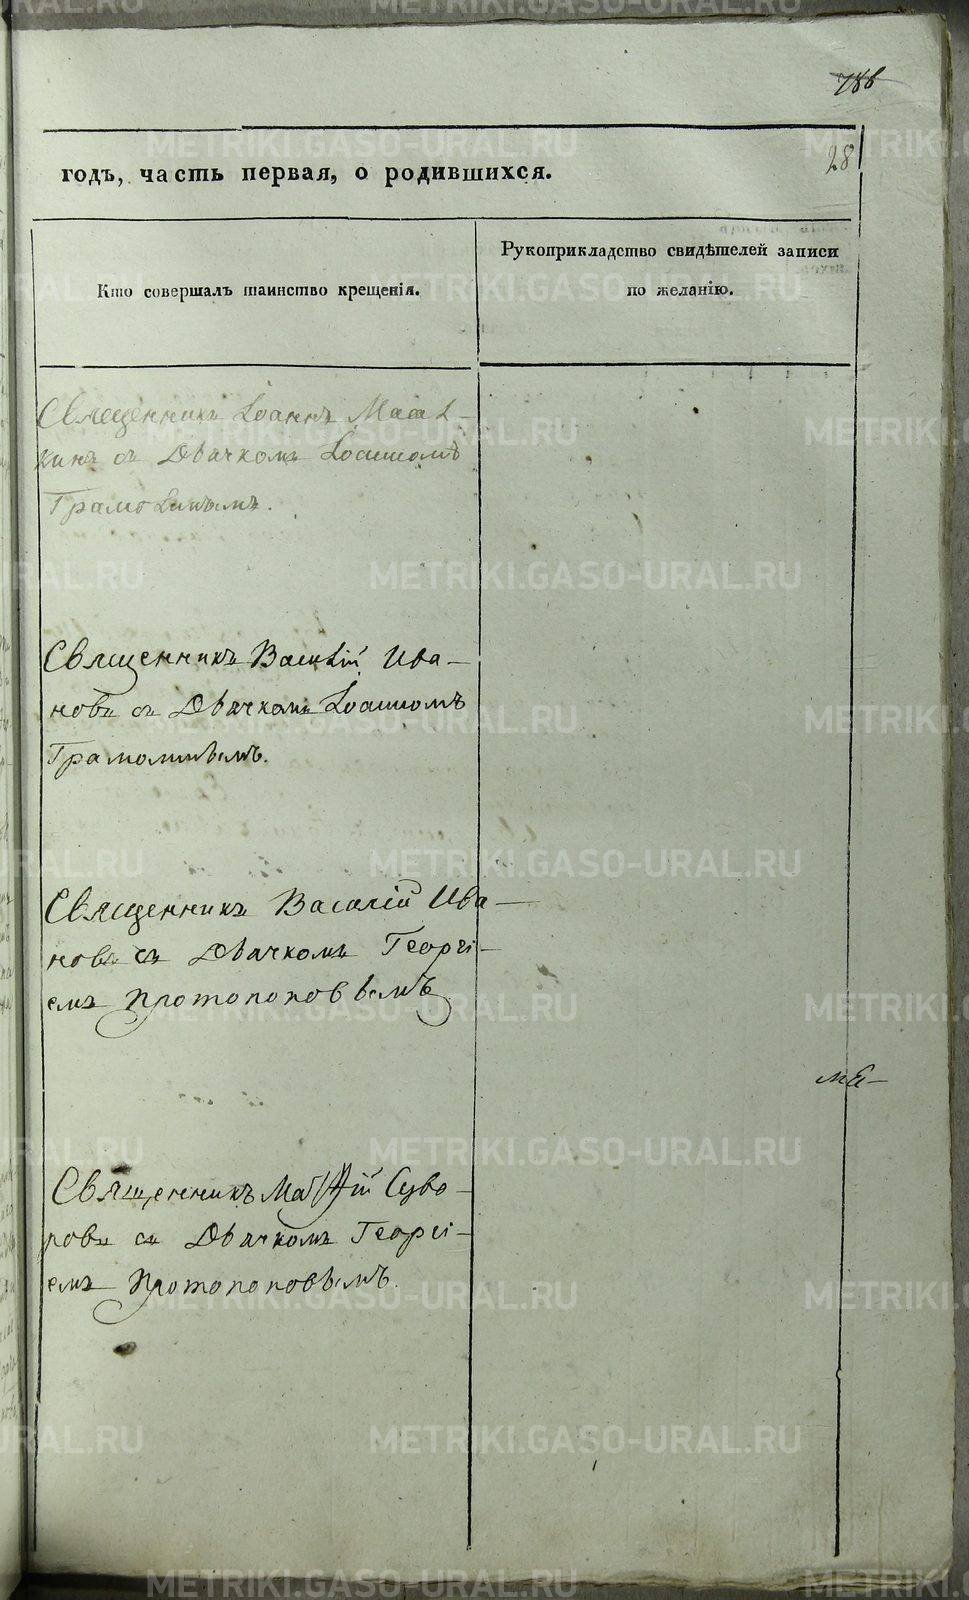 188
28
годъ, часть первая, о родившихся.
Кто совершалъ таинство крещенія.
Рукоприкладство свидѣтелей записи
по желанію.
Священникъ Іоаннъ
съ Дьячкомъ Іоанномъ
Священникъ Василій Ива-
новъ съ Дьячкомъ Іоанномъ
Священникъ Василій Ива-
новъ съ Дьячкомъ Георгі-
емъ Протопоповымъ
Священникъ Матѳій Суво-
ровъ съ Дьячкомъ Георгі-
емъ Протопоповымъ.
METRIKI.GASO-URAL.RU